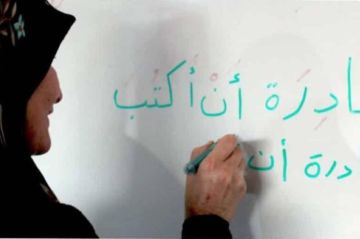 ادِرَة أَنْ أَكْتُبَ
درة أن